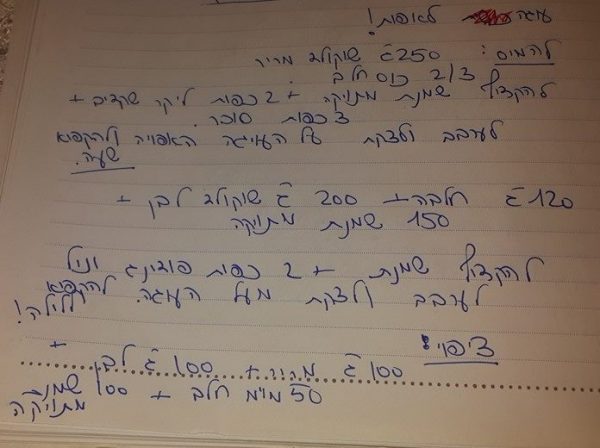 עוגה לאופות!
להמיס: 250 ג שוקולד מריר
2/3 כוס חלב.
להקציף שמנת מתוקה + 2 כפות ליקר שקדים +
3 כפות סוכר.
לערבב ולצקת על העוגה האפויה ולהקפיא
שעה.
120 ג חלבה + 200 ג שוקולד לבן +
150 שמנת מתוקה
להקציף שמנת + 2 כפות פודינג וניל
לערבב ולצקת מעל העוגה. להקפיא
ללילה!
ציפוי:
100 ג מריר + 100 ג לבן +
50 מ"מ חלב + 100 שמנת
מתוקה